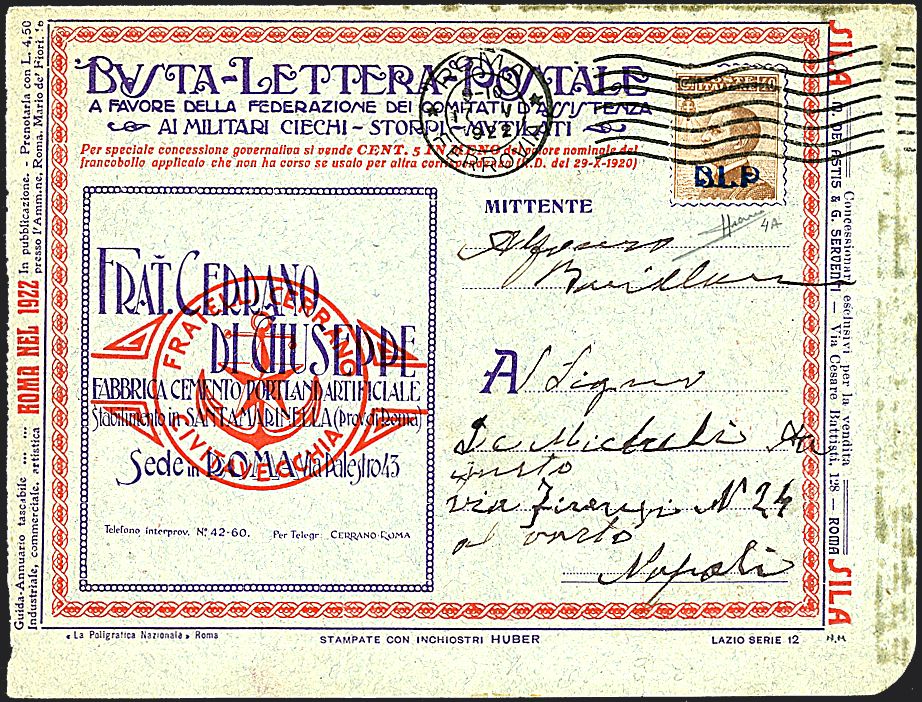 BUSTA-LETTERA POSTALE
A FAVORE DELLA FEDERAZIONE DEI COMITATI D'ASSISTENZA
AI MILITARI CIECHI - STORPI - MUTILATI
Per speciale concessione governativa si vende CENT. 5 IN MENO del valore nominale del
francobollo applicato che non ha corso se usato per altra corrispondenza (R.D. del 29-X-1920)
1922
FERROVIA
B.L.P.
4A
MITTENTE
Alfonso
FRAT. CERRANO
DI GIUSEPPE
FABBRICA CEMENTO PORTLAND ARTIFICIALE
Stabilimento in SANTAMARINELLA (Prov. di Roma)
Sede in ROMA Via Palestro 43
FRATELLI CERRANO
CIVITAVECCHIA
Telefono interprov. N.° 42-60. Per Telegr: CERRANO-ROMA
Al Signor
De Michele
via Firenze N 24
al vasto
Napoli
Guida-Annuario tascabile ... ... ROMA NEL 1922 In pubblicazione. - Prenotarla con L. 4,50
Industriale, commerciale, artistica presso l'Amm.ne, Roma, Mario de' Fiori,
SILA D. DE ASTIS & G. SERVENTI — Via Cesare Battisti, 128 — ROMA SILA
Concessionari esclusivi per la vendita
« La Poligrafica Nazionale » Roma
STAMPATE CON INCHIOSTRI HUBER
LAZIO SERIE 12
N.M.